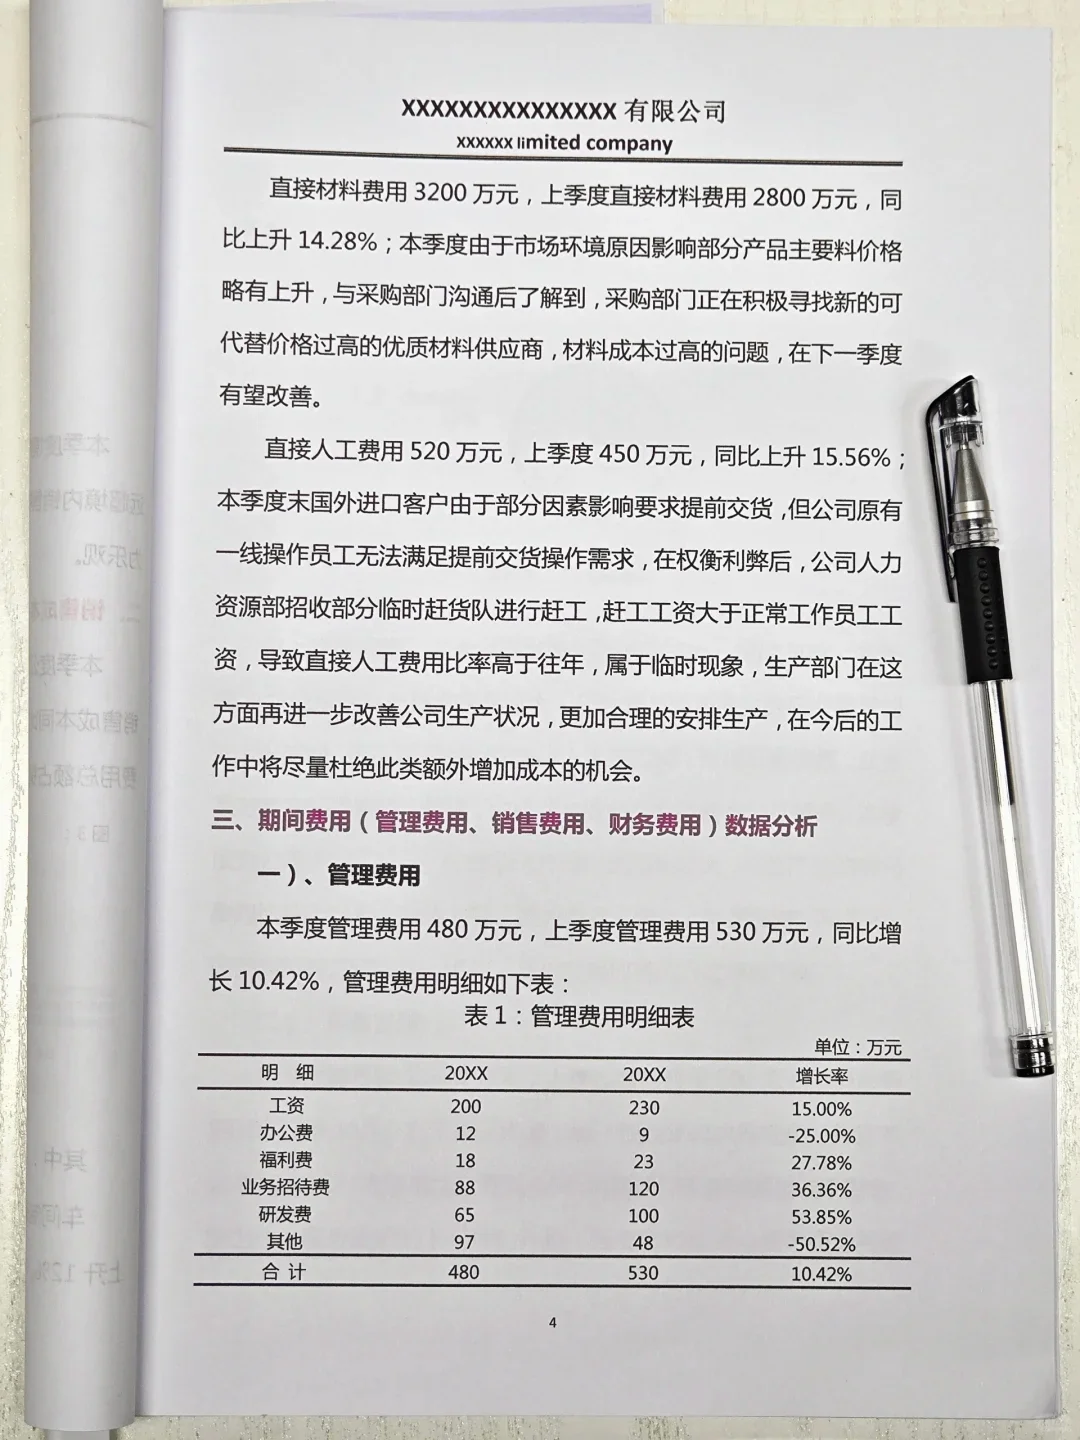 XXXXXXXXXXXXXXX 有限公司
xxxxxx limited company
直接材料费用 3200 万元，上季度直接材料费用 2800 万元，同
比上升 14.28%；本季度由于市场环境原因影响部分产品主要料价格
略有上升，与采购部门沟通后了解到，采购部门正在积极寻找新的可
代替价格过高的优质材料供应商，材料成本过高的问题，在下一季度
有望改善。
直接人工费用 520 万元，上季度 450 万元，同比上升 15.56%；
本季度末国外进口客户由于部分因素影响要求提前交货，但公司原有
一线操作员工无法满足提前交货操作需求，在权衡利弊后，公司人力
资源部招收部分临时赶货队进行赶工，赶工工资大于正常工作员工工
资，导致直接人工费用比率高于往年，属于临时现象，生产部门在这
方面再进一步改善公司生产状况，更加合理的安排生产，在今后的工
作中将尽量杜绝此类额外增加成本的机会。
三、期间费用（管理费用、销售费用、财务费用）数据分析
一）、管理费用
本季度管理费用 480 万元，上季度管理费用 530 万元，同比增
长 10.42%，管理费用明细如下表：
表 1：管理费用明细表
单位：万元
明 细 20XX 20XX 增长率
工资 200 230 15.00%
办公费 12 9 -25.00%
福利费 18 23 27.78%
业务招待费 88 120 36.36%
研发费 65 100 53.85%
其他 97 48 -50.52%
合 计 480 530 10.42%
4